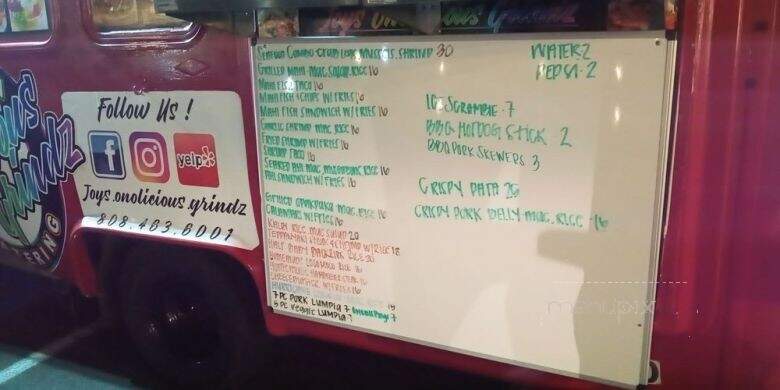 Joys Onolicious Grindz
Follow Us !
f
yelp
Joys.onolicious.grindz
808.463.6001
Grindz
SEAFOOD COMBO CRAB LEGS, MUSSELS, SHRIMP 30
GRILLED MAHI MAC SALAD, RICE 16
MAHI FISH TACO 16
MAHI FISH + CHIPS W/FRIES 16
MAHI FISH SANDWICH W/FRIES 16
GARLIC SHRIMP MAC, RICE 16
FRIED SHRIMP W/FRIES 16
SHRIMP TACO 16
SEARED AHI MAC, RICE 16
AHI SANDWICH W/FRIES 16
GRILLED OPAKAPAKA MAC, RICE 16
CALAMARI W/FRIES 16
KALBI RICE, MAC SALAD 20
HALF BABY BACK RICE 20
HOMEMADE LOCO MOCO RICE 16
HAMBURGER STEAK 16
CHEESEBURGER W/FRIES 16
7 PC PORK LUMPIA 7
5 PC VEGGIE LUMPIA 7
WATER 2
PEPSI - 2
ICE SCRAMBLE - 7
BBQ HOTDOG STICK 2
BBQ PORK SKEWERS 3
CRISPY PATA 20
CRISPY PORK BELLY MAC, RICE - 16
menupix